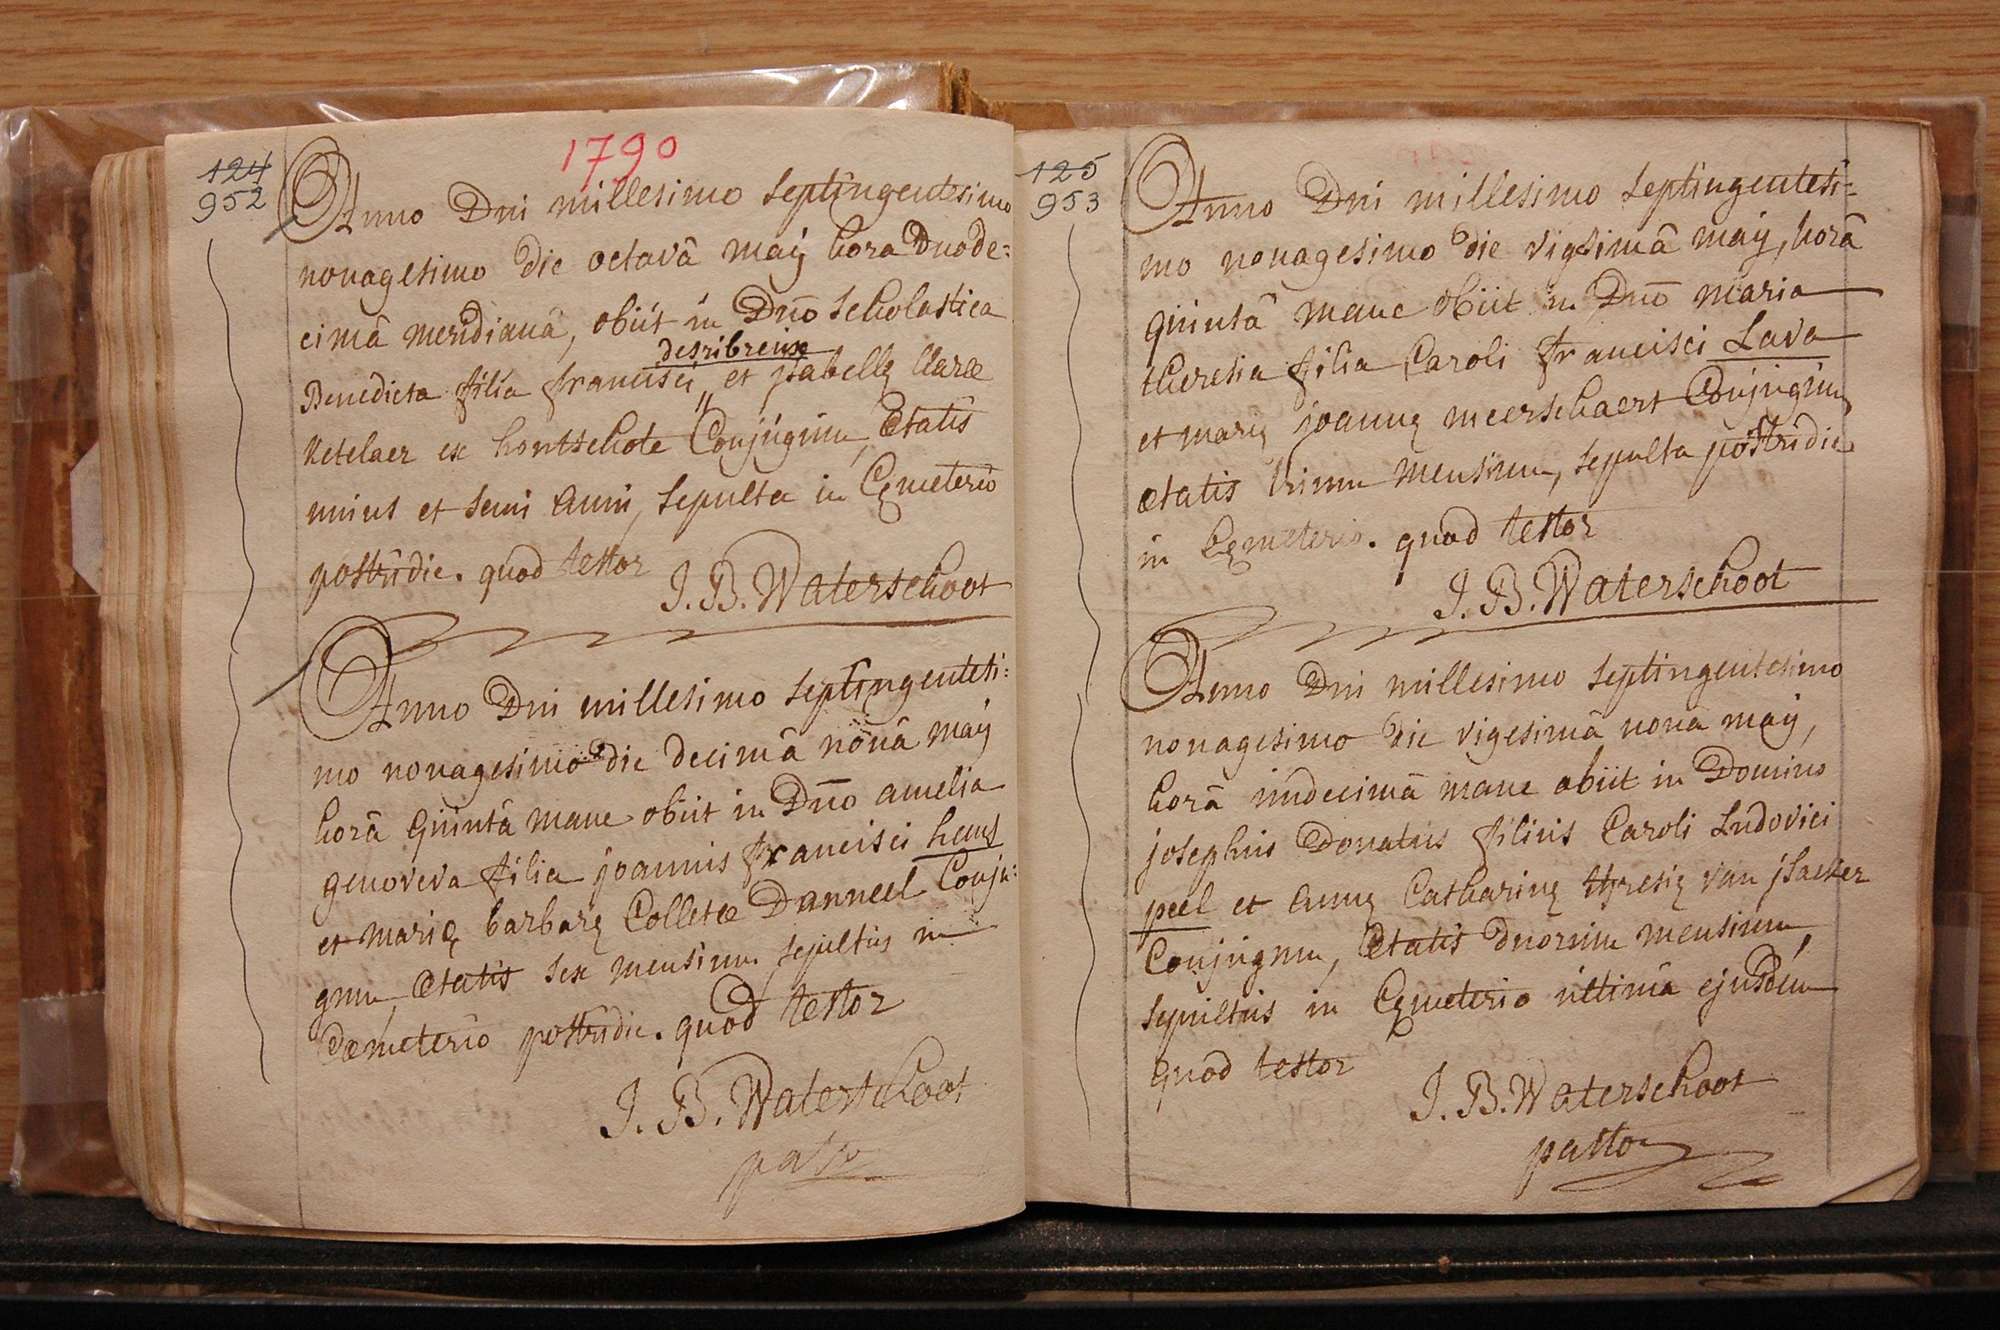 1790
124
952
Anno Dni millesimo septingentesimo
nonagesimo die octavâ maÿ hora duode=
cimâ meridianâ, obiit in Dno scholastica
desribreuse
Benedicta filia francisci " et jsabellę Claræ
Ketelaer ex hontschote Conjugum, Ætatis
unius et semi anni, sepulta in Cęmeterio
postridie. quod testor
J. B. Waterschoot
Anno Dni millesimo septingentesi=
mo nonagesimo die decimâ nonâ maÿ
horâ quintâ mane obiit in Dno amelia
genoveva filia joannis francisci hens
et marię barbarę Colletæ Danneel Conju=
gum, Ætatis sex mensium sepultus in
Cæmeterio postridie. quod testor
J. B. Waterschoot
pastor
125
953
Anno Dni millesimo septingentesi=
mo nonagesimo die vigesimâ maÿ, horâ
quintâ mane obiit in Dno maria
theresia filia Caroli francisci Lava
et marię joannę meerschaert Conjugum
ætatis trium mensium, sepulta postridie
in Cęmeterio. quod testor
J. B. Waterschoot
Anno Dni millesimo septingentesimo
nonagesimo die vigesimâ nona maÿ,
horâ undecimâ mane obiit in Domino
josephus Donatus filius Caroli Ludovici
peel et annę Catharinę thresię van jsacker
Conjugum, Ætatis duorum mensium,
sepultus in Cęmeterio ultimâ ejusdem
quod testor
J. B. Waterschoot
pastor